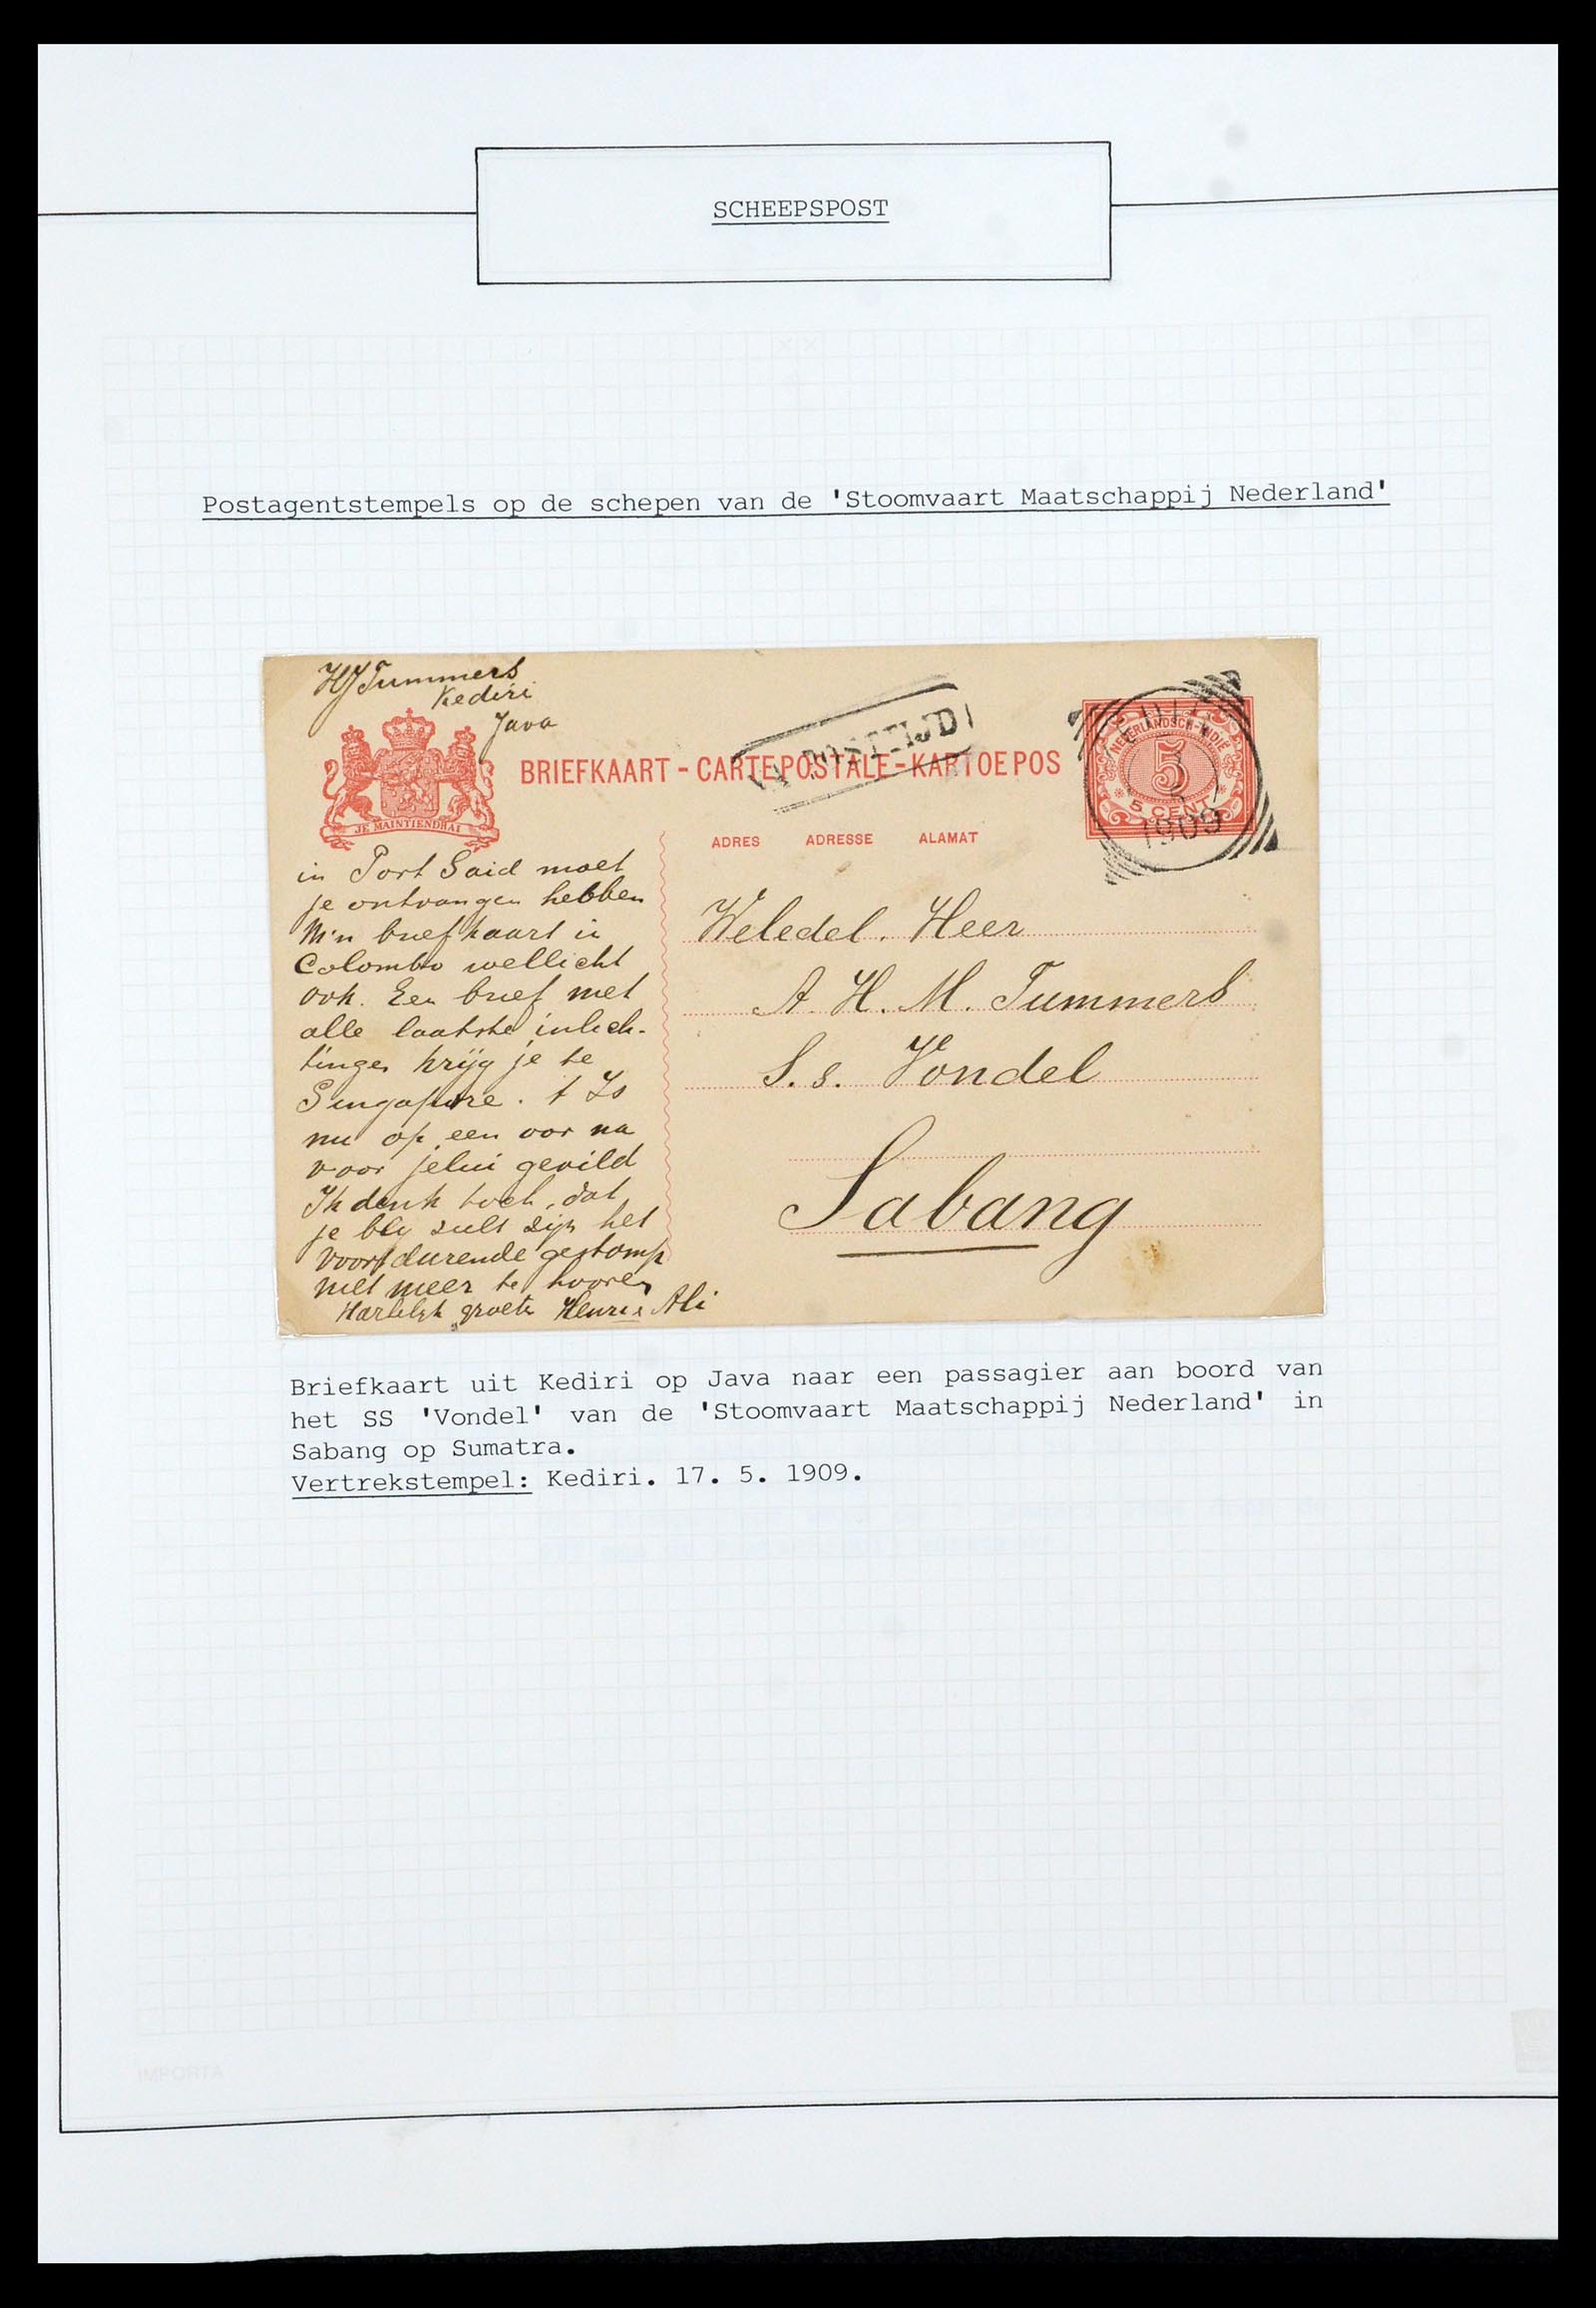 SCHEEPSPOST
Postagentstempels op de schepen van de 'Stoomvaart Maatschappij Nederland'
HJTummers
Kediri
Java
JE MAINTIENDRAI
BRIEFKAART - CARTE POSTALE - KARTOE POS
NA POSTTIJD
NEDERLANDSCH-INDIË
5
5 CENT
1909
ADRES ADRESSE ALAMAT
in Port Said moet
je ontvangen hebben
M'n briefkaart in
Colombo wellicht
ook. Een brief met
alle laatste inlich-
tingen krijg je te
Singapore. 't Is
nu op een oor na
voor jelui gevild
Ik denk toch, dat
je bly zult zijn het
voortdurende gestomp
niet meer te hooren
Hartelijk groeten Henri & Ali
Weledel. Heer
A. H. M. Tummers
S.s. Vondel
Sabang
Briefkaart uit Kediri op Java naar een passagier aan boord van
het SS 'Vondel' van de 'Stoomvaart Maatschappij Nederland' in
Sabang op Sumatra.
Vertrekstempel: Kediri. 17. 5. 1909.
IMPORTA